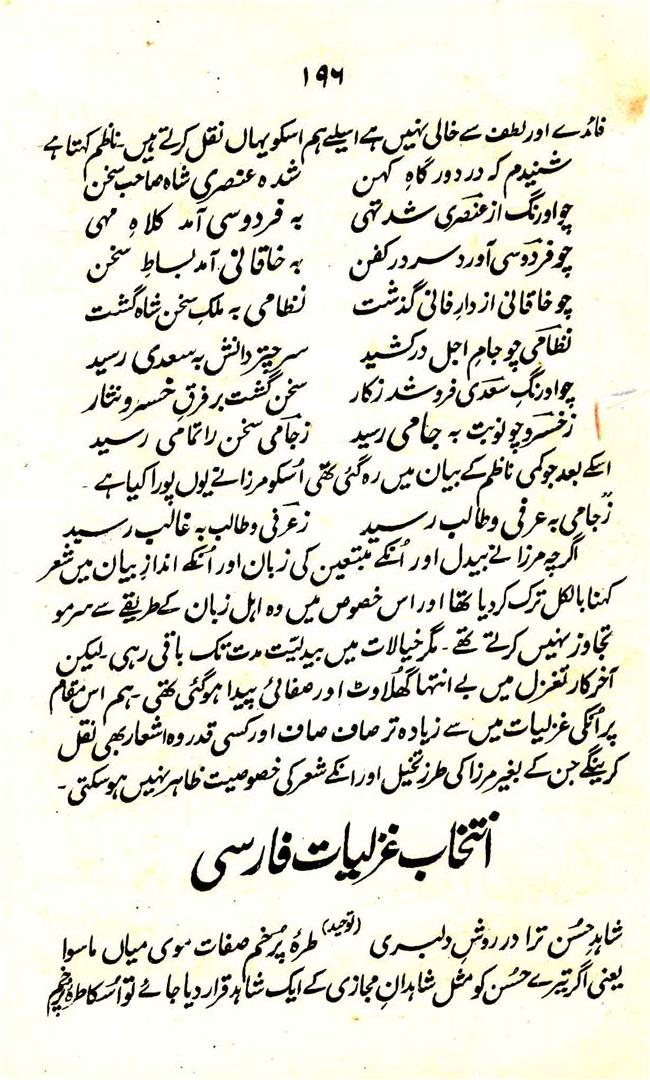 ۱۹۶
فائدے اور لطف سے خالی نہیں ہے اسلیے ہم اسکو یہاں نقل کرتے ہیں۔ ناظم کہتا ہے
شنیدم کہ در دور گاہِ کہن شدہ عنصری شاہ صاحب سخن
چو اورنگ از عنصری شد تہی بہ فردوسی آمد کلاہِ مہی
چو فردوسی آورد سر در کفن بہ خاقانی آمد بساطِ سخن
چو خاقانی از دارِ فانی گذشت نظامی بہ ملکِ سخن شاہ گشت
نظامی چو جامِ اجل در کشید سرِ چتر دانش بہ سعدی رسید
چو اورنگ سعدی فرو شد زکار سخن گشت بر فرقِ خسرو نثار
زخسرو چو نوبت بہ جامی رسید زجامی سخن را تمامی رسید
اسکے بعد جو کمی ناظم کے بیان میں رہ گئی تھی اُسکو مرزا نے یوں پورا کیا ہے۔
زجامی بہ عرفی و طالب رسید زعرفی و طالب بہ غالب رسید
اگرچہ مرزا نے بیدل اور اُنکے متبعین کی زبان اور اُنکے اندازِ بیان میں شعر
کہنا بالکل ترک کردیا تھا اور اس خصوص میں وہ اہل زبان کے طریقے سے سرمو
تجاوز نہیں کرتے تھے۔ مگر خیالات میں بیدلیت مدت تک باقی رہی۔ لیکن
آخرکار تغزل میں بے انتہا گھلاوٹ اور صفائی پیدا ہوگئی تھی۔ ہم اس مقام
پر اُنکی غزلیات میں سے زیادہ تر صاف صاف اور کسی قدر وہ اشعار بھی نقل
کرینگے جن کے بغیر مرزا کی طرز تخیل اور انکے شعر کی خصوصیت ظاہر نہیں ہوسکتی۔
انتخاب غزلیات فارسی
(توحید)
شاہدِ حسن ترا در روشِ دلبری طرۂ پُرخم صفات موی میاں ماسوا
یعنی اگر تیرے حُسن کو مثل شاہدانِ مجازی کے ایک شاہد قرار دیا جائے تو اُسکا طرۂ پُرخم